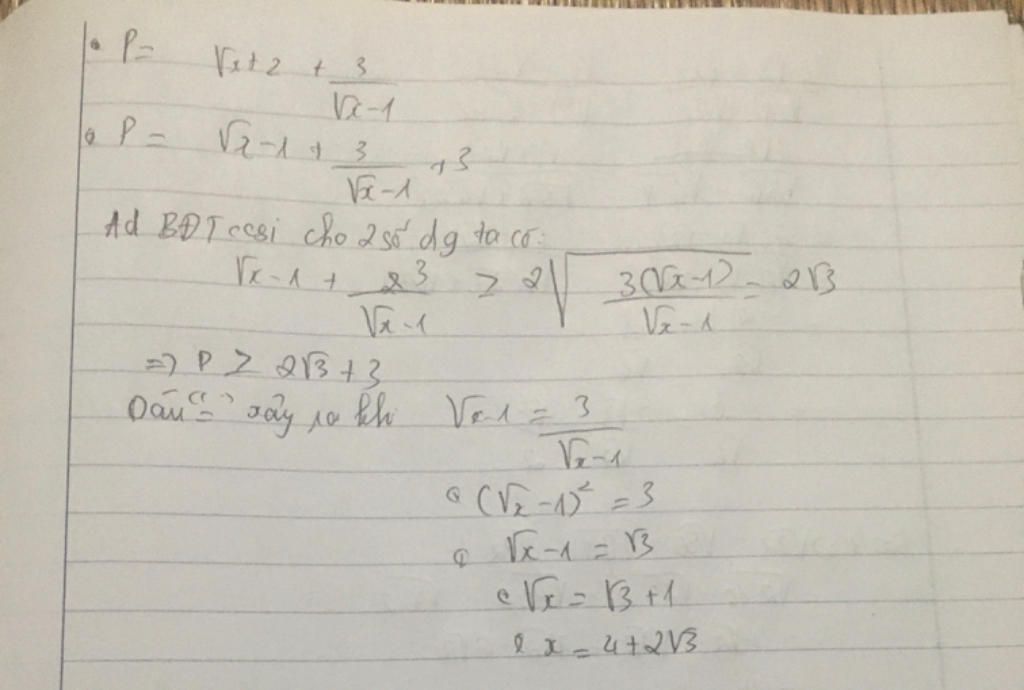 P = √x + 2 + 3/(√x - 1)
P = √x - 1 + 3/(√x - 1) + 3
Ad BĐT cosi cho 2 số dg ta có:
√x - 1 + 3/(√x - 1) ≥ 2√(3(√x - 1)/(√x - 1)) = 2√3
=> P ≥ 2√3 + 3
Dấu "=" xảy ra khi √x - 1 = 3/(√x - 1)
(√x - 1)² = 3
√x - 1 = √3
√x = √3 + 1
x = 4 + 2√3